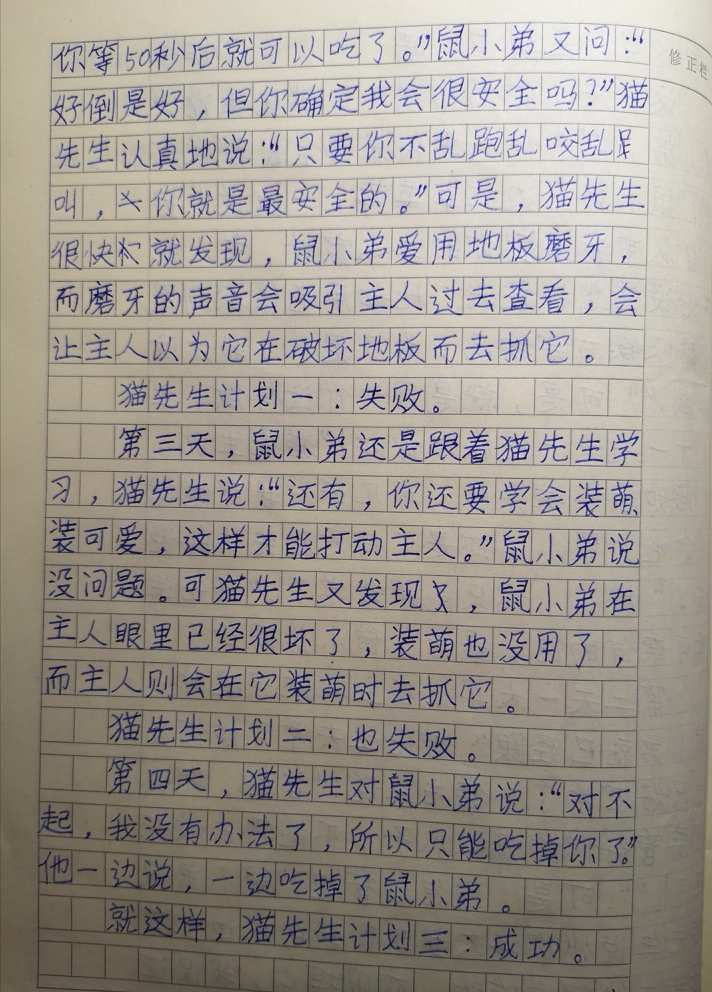 你等50秒后就可以吃了。”鼠小弟又问：“
修正栏
好倒是好，但你确定我会很安全吗？”猫
先生认真地说：“只要你不乱跑乱咬乱
叫，你就是最安全的。”可是，猫先生
很快就发现，鼠小弟爱用地板磨牙，
而磨牙的声音会吸引主人过去查看，会
让主人以为它在破坏地板而去抓它。
猫先生计划一：失败。
第三天，鼠小弟还是跟着猫先生学
习，猫先生说：“还有，你还要学会装萌
装可爱，这样才能打动主人。”鼠小弟说
没问题。可猫先生又发现了，鼠小弟在
主人眼里已经很坏了，装萌也没用了，
而主人则会在它装萌时去抓它。
猫先生计划二：也失败。
第四天，猫先生对鼠小弟说：“对不
起，我没有办法了，所以只能吃掉你了。”
他一边说，一边吃掉了鼠小弟。
就这样，猫先生计划三：成功。